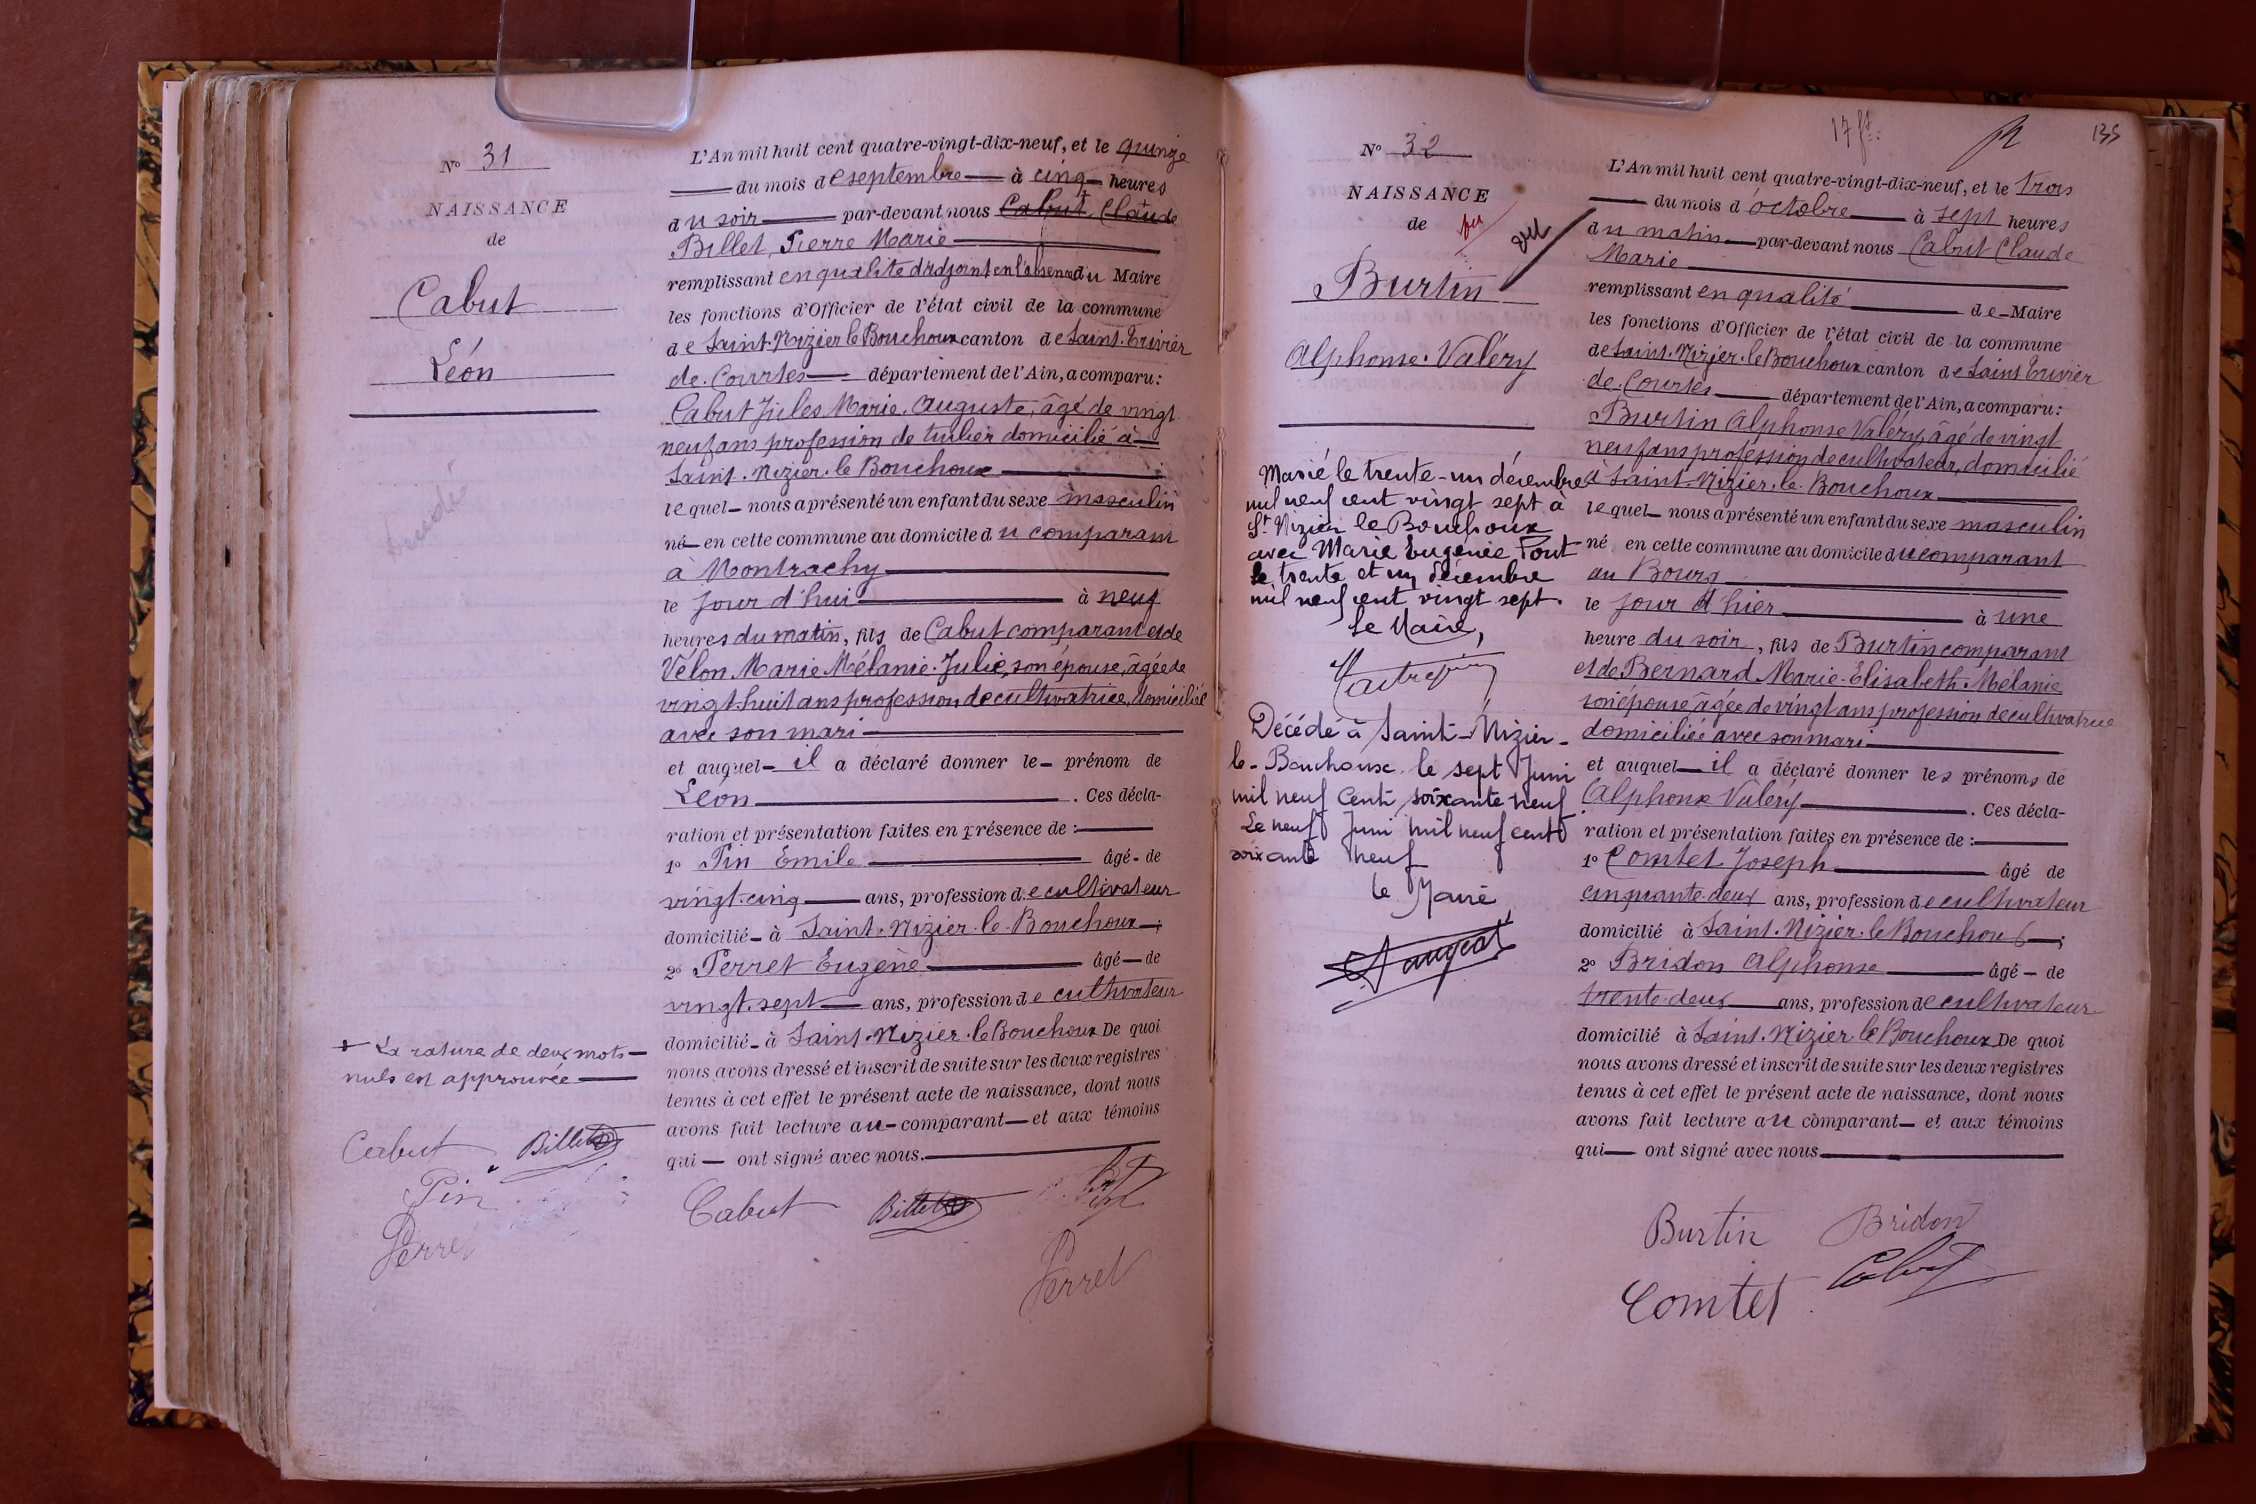 N° 31
NAISSANCE
de
Cabut
Léon
+ La rature de deux mots
nuls est approuvée
Cabut Billet
Pin
Perret
L'An mil huit cent quatre-vingt-dix-neuf, et le quinze
du mois de septembre à cinq heures
du soir par-devant nous Cabut Claude
Billet, Pierre Marie
remplissant en qualité d'adjoint en l'absence du Maire
les fonctions d'Officier de l'état civil de la commune
de Saint-Nizier le Bouchoux canton de Saint-Trivier
de Courtes département de l'Ain, a comparu :
Cabut Jules Marie Auguste, âgé de vingt
neuf ans profession de tuilier domicilié à
Saint-Nizier-le Bouchoux
lequel nous a présenté un enfant du sexe masculin
né en cette commune au domicile du comparant
à Montrachy
le jour d'hui à neuf
heures du matin, fils de Cabut comparant et de
Vélon Marie Mélanie Julie, son épouse, âgée de
vingt-huit ans profession de cultivatrice, domiciliée
avec son mari
et auquel il a déclaré donner le prénom de
Léon. Ces décla-
ration et présentation faites en présence de :
1° Pin Emile âgé de
vingt-cinq ans, profession de cultivateur
domicilié à Saint-Nizier-le-Bouchoux ;
2° Perret Eugène âgé de
vingt-sept ans, profession de cultivateur
domicilié à Saint-Nizier-le Bouchoux De quoi
nous avons dressé et inscrit de suite sur les deux registres
tenus à cet effet le présent acte de naissance, dont nous
avons fait lecture au comparant et aux témoins
qui ont signé avec nous.
Cabut Billet Pin
Perret
135
N° 32
NAISSANCE
de
Burtin
Alphonse Valéry
Marié le trente-un décembre
mil neuf cent vingt sept à
St Nizier le Bouchoux
avec Marie Eugénie Pont
le trente et un décembre
mil neuf cent vingt sept.
Le Maire,
Décédé à Saint-Nizier-
le-Bouchoux le sept Juin
mil neuf Cent soixante neuf
Le neuf Juin mil neuf cent
soixante neuf
le Maire
L'An mil huit cent quatre-vingt-dix-neuf, et le trois
du mois d'octobre à sept heures
du matin par-devant nous Cabut Claude
Marie
remplissant en qualité de Maire
les fonctions d'Officier de l'état civil de la commune
de Saint-Nizier-le Bouchoux canton de Saint Trivier
de Courtes département de l'Ain, a comparu :
Burtin Alphonse Valéry, âgé de vingt
neuf ans profession de cultivateur, domicilié
à Saint-Nizier-le-Bouchoux
lequel nous a présenté un enfant du sexe masculin
né en cette commune au domicile du comparant
au Bourg
le jour d'hier à une
heure du soir, fils de Burtin comparant
et de Bernard Marie-Elisabeth-Mélanie
son épouse âgée de vingt ans profession de cultivatrice
domiciliée avec son mari
et auquel il a déclaré donner les prénoms de
Alphonse Valéry. Ces décla-
ration et présentation faites en présence de :
1° Comtet Joseph âgé de
cinquante-deux ans, profession de cultivateur
domicilié à Saint-Nizier-le Bouchoux ;
2° Bridon Alphonse âgé de
trente-deux ans, profession de cultivateur
domicilié à Saint-Nizier le Bouchoux De quoi
nous avons dressé et inscrit de suite sur les deux registres
tenus à cet effet le présent acte de naissance, dont nous
avons fait lecture au comparant et aux témoins
qui ont signé avec nous
Burtin Bridon
Comtet Cabut